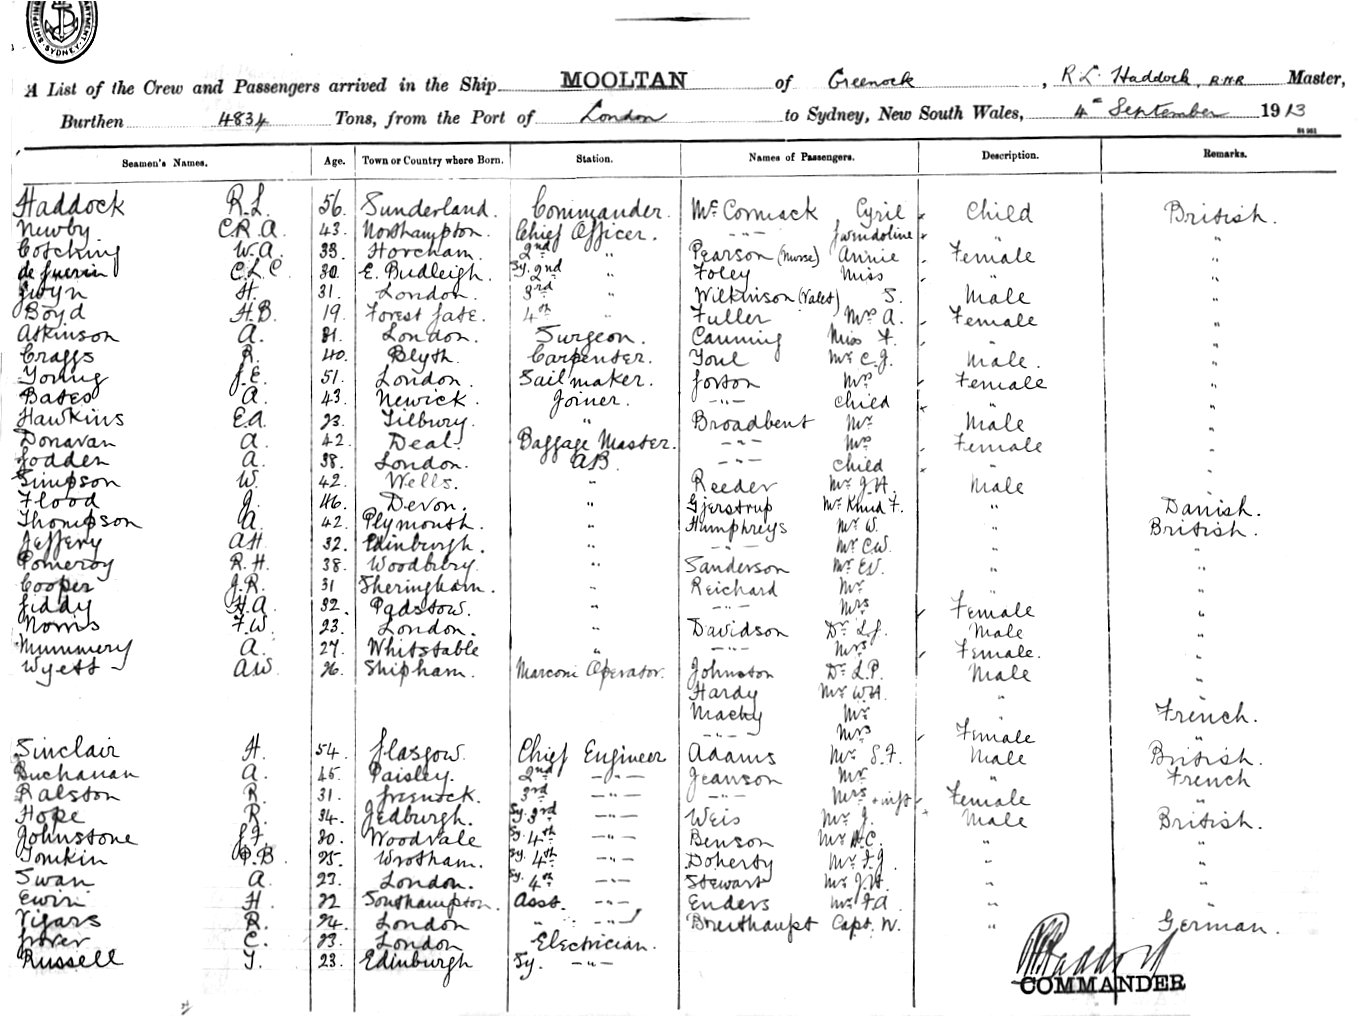 SYDNEY
A List of the Crew and Passengers arrived in the Ship MOOLTAN of Greenock, R.L. Haddock, R.N.R. Master,
Burthen 4834 Tons, from the Port of London to Sydney, New South Wales, 4th September 1913
Seamen's Names. Age. Town or Country where Born. Station. Names of Passengers. Description. Remarks.
Haddock R.L. 56. Sunderland. Commander. McCormack Cyril Child British.
Newby C.R.A. 43. Northampton. Chief Officer. —"— Gwendoline "
W.A. 33. Horsham. 2nd " Pearson (Nurse) Annie Female "
de Guerin C.L.C. 30. E. Budleigh. Sy. 2nd " Foley Miss " "
Gwyn H. 31. London. 3rd " Wilkinson (Valet) S. Male "
Boyd H.B. 19. Forest Gate. 4th " Fuller Mrs A. Female "
Atkinson A. 31. London. Surgeon. Canning Miss F. " "
Craggs R. 40. Blyth. Carpenter. Youl Mr C.G. Male. "
Young J.E. 51. London. Sailmaker. Mrs Female "
Bates A. 43. Newick. Joiner. —"— Child " "
Hawkins Ed. 23. Tilbury. " Broadbent Mr Male "
Donavan A. 42. Deal. Baggage Master. —"— Mrs Female "
Godden A. 38. London. AB. —"— Child " "
Simpson W. 42. Wells. " Reeder Mr J.H. Male "
Flood J. 46. Devon. " Gjerstrup Mr Knud F. " Danish.
Thompson A. 42. Plymouth. " Humphreys Mr W. " British.
Jeffery A.H. 32. Edinburgh. " —"— Mr C.W. " "
Pomeroy R.H. 38. Woodbury. " Sanderson Mr E.V. " "
Cooper J.R. 31 Sheringham. " Reichard Mr " "
Giddy H.A. 32. Padstow. " —"— Mrs Female "
Norris F.W. 23. London. " Davidson Dr L.G. Male "
Mummery A. 27. Whitstable " —"— Mrs Female. "
Wyett A.W. 26. Shipham. Marconi Operator. Johnston Dr L.P. Male "
Hardy Mr W.H. " "
Mr " French.
—"— Mrs Female "
Sinclair H. 54. Glasgow. Chief Engineer Adams Mr S.F. Male British.
Buchanan A. 45. Paisley. 2nd —"— Jeanson Mr " French
Ralston R. 31. Greenock. 3rd —"— —"— Mrs + inft Female "
Hope R. 34. Jedburgh. Sy. 3rd —"— Weis Mr J. Male British.
Johnstone J.F. 30. Woodvale Sy. 4th —"— Benson Mr H.C. " "
Tomkin P.B. 25. Wrotham. Sy. 4th —"— Doherty Mr F.J. " "
Swan A. 23. London. Sy. 4th —"— Stewart Mr J.H. " "
Ewin H. 22 Southampton. Asst. —"— Enders Mr F.A. " "
Vigars R. 24. London " —"— Breithaupt Capt. W. " German.
Grover C. 23. London Electrician.
Russell T. 23. Edinburgh Sy. —"—
R L Haddock
COMMANDER